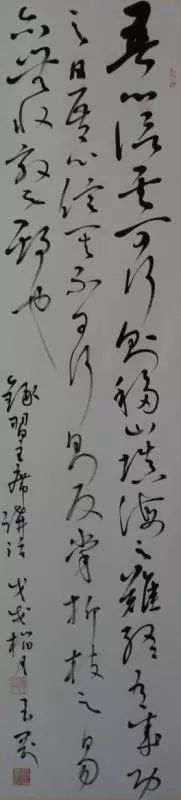 吾心信其可行则移山填海之难终有成功
之日吾心信其不可行则反掌折枝之易
亦无收效之期也
录习主席讲话 戊戌桐月 玉